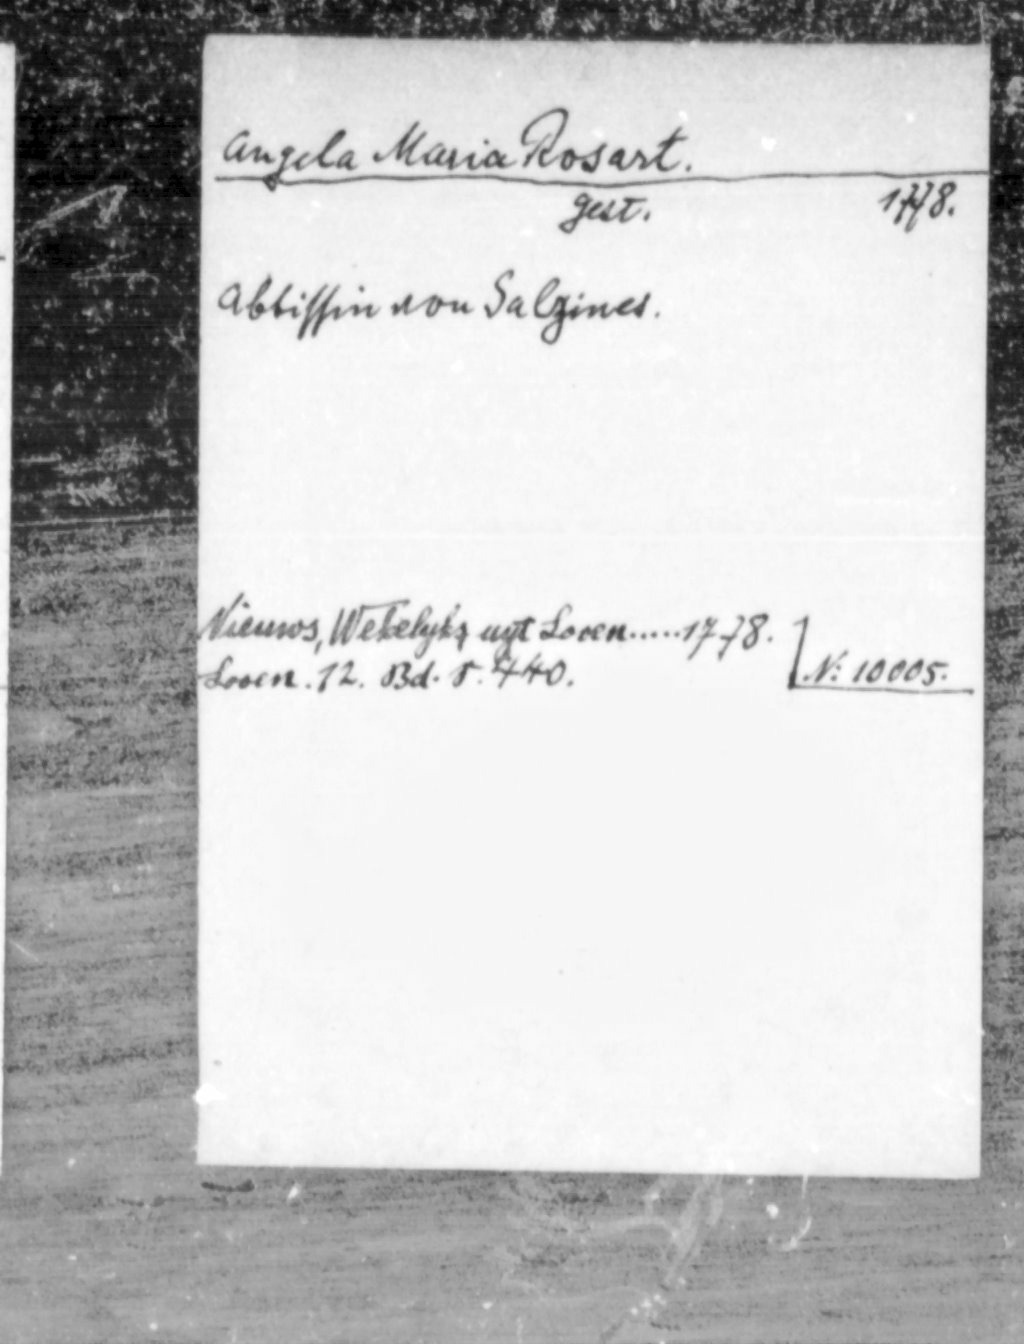 Angela Maria Rosart.
gest. 1778.
Abbissin von Salzines.
Nieuws, Wekelyks uyt Loven......1778.
Loven. 12. Bd. S. 440.
N: 10005.